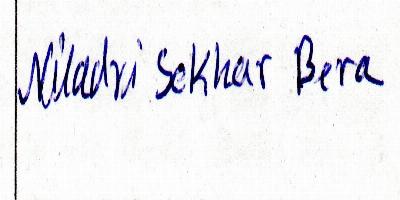 Niladri Sekhar Bera